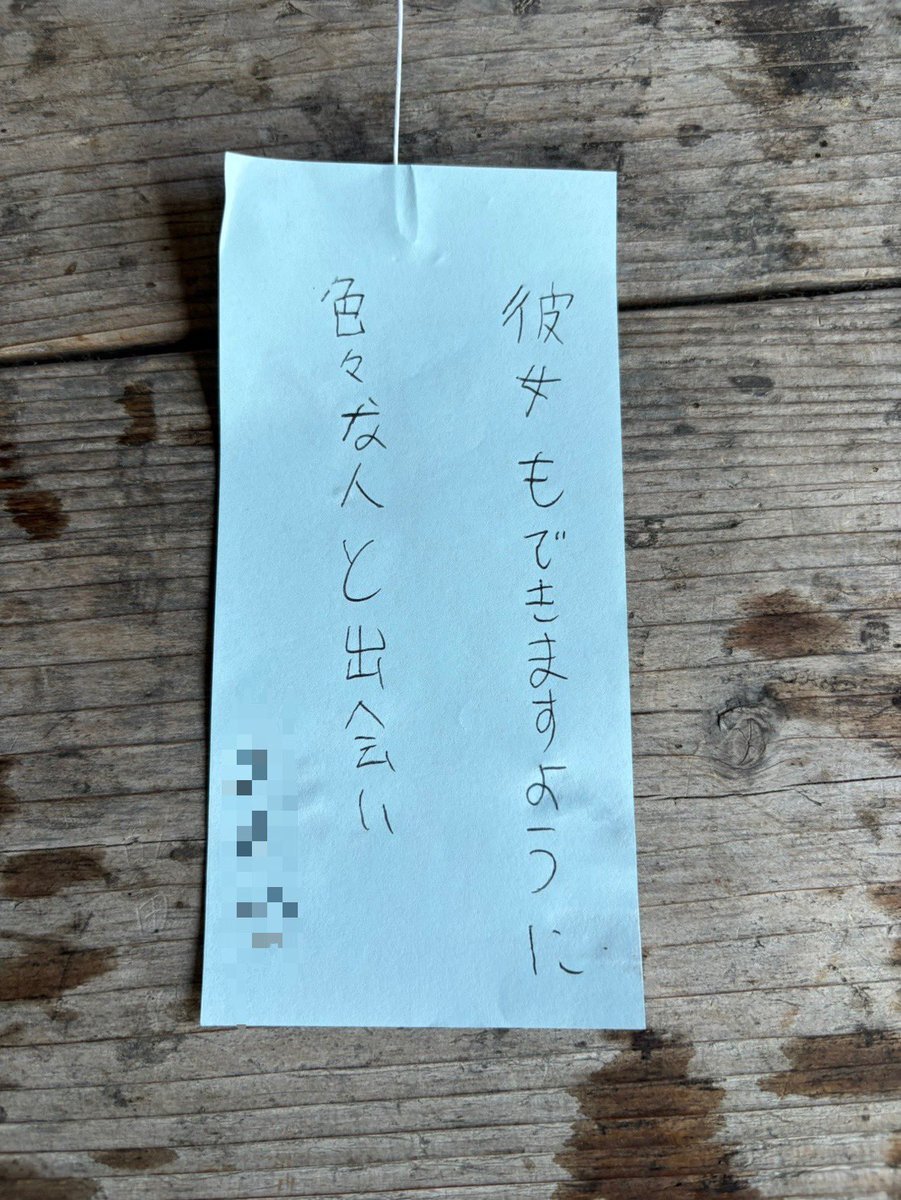 彼女もできますように
色々な人と出会い